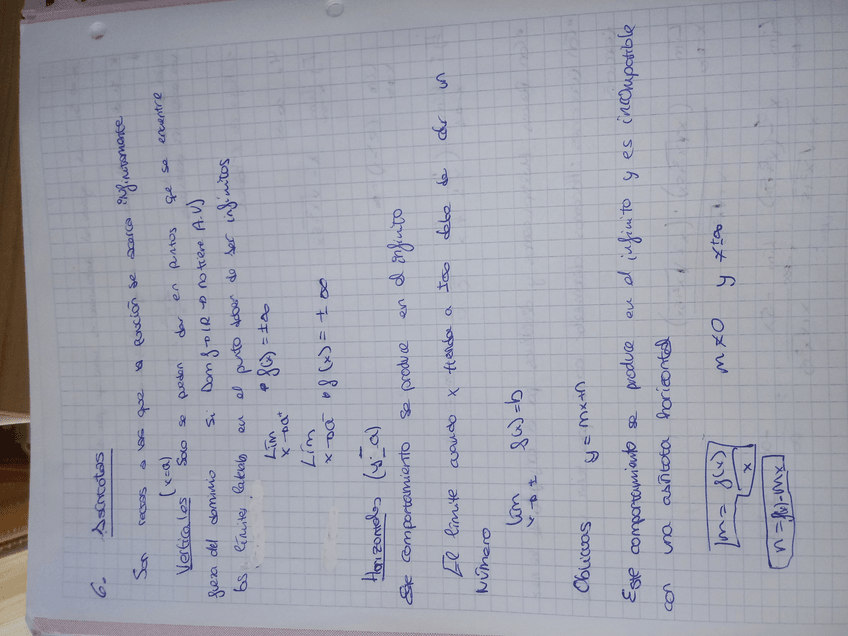 6.- Asíntotas
Son rectas a las que la función se acerca infinitamente
(x=a)
Verticales Solo se pueden dar en puntos que se encuentre
fuera del dominio si Dom f→ℝ → no tiene A.V)
los límites laterales en el punto de ser infinitos
Lim x→a⁺ f(x) = ±∞
Lim x→a⁻ f(x) = ±∞
Horizontales (y=a)
Este comportamiento se produce en el infinito
El límite cuando x tienda a ±∞ debe de dar un
número
Lim x→± f(x)=b
Oblicuas y=mx+n
Este comportamiento se produce en el infinito y es incompatible
con una asíntota horizontal
m= f(x)/x m≠0 y x±∞
n=f(x)-mx